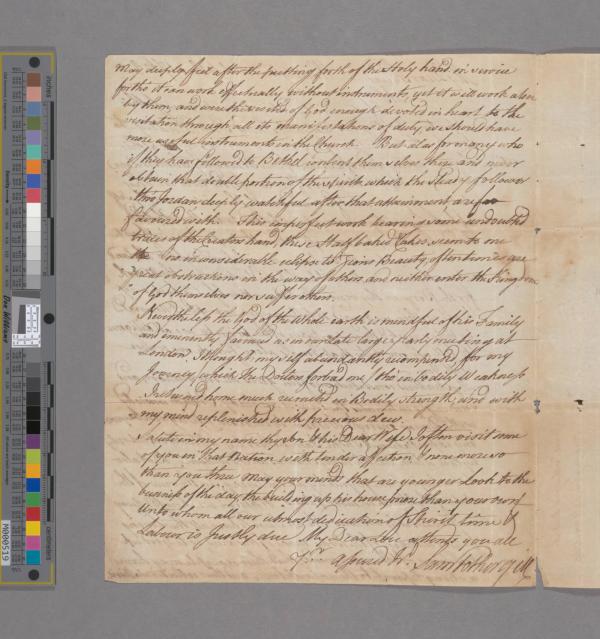 may deeply feel after the putting forth of the Holy hand in service
for tho it can work effectually without instruments yet it will work also
by them, and were the visited of God enough devoted in heart to the
visitation through all its manifestations of duty, we should have
more useful instruments in the Church. But alas for many who
if they have followed to Bethel content themselves there and never
obtain that double portion of the spirit which the steady follower
thro Jordan deeply watchful after that attainment, are
favoured with. This imperfect work bearing some undoubted
traces of the Creators hand, these Half baked Cakes seem to me
no inconsiderable eclipse to Zions Beauty, oftentimes are
great obstructions in the way of others and neither enter the Kingdom
of God themselves nor suffer others.
Nevertheless the God of the whole earth is mindful of his Family
and eminently favoured us in our late large yearly meeting at
London I thought myself abundantly recompensed for my
Journey, which the Doctors forbad me, tho in bodily Weakness
I returned home much recruited in Bodily strength, and with
my mind replenished with precious dew.
Salute in my name thy Son & his Dear Wife I often visit some
of you in that Nation with tender affection & none more so
than you three may your minds that are younger Look to the
business of the day, the building up his house more than your own
Unto whom all our utmost dedication of Spirit, time &
Labour is Justly due My Dear Love attends you all
Yr. assured Fr. Sam Fothergill
inches
centimetres
Don Williams
M000519